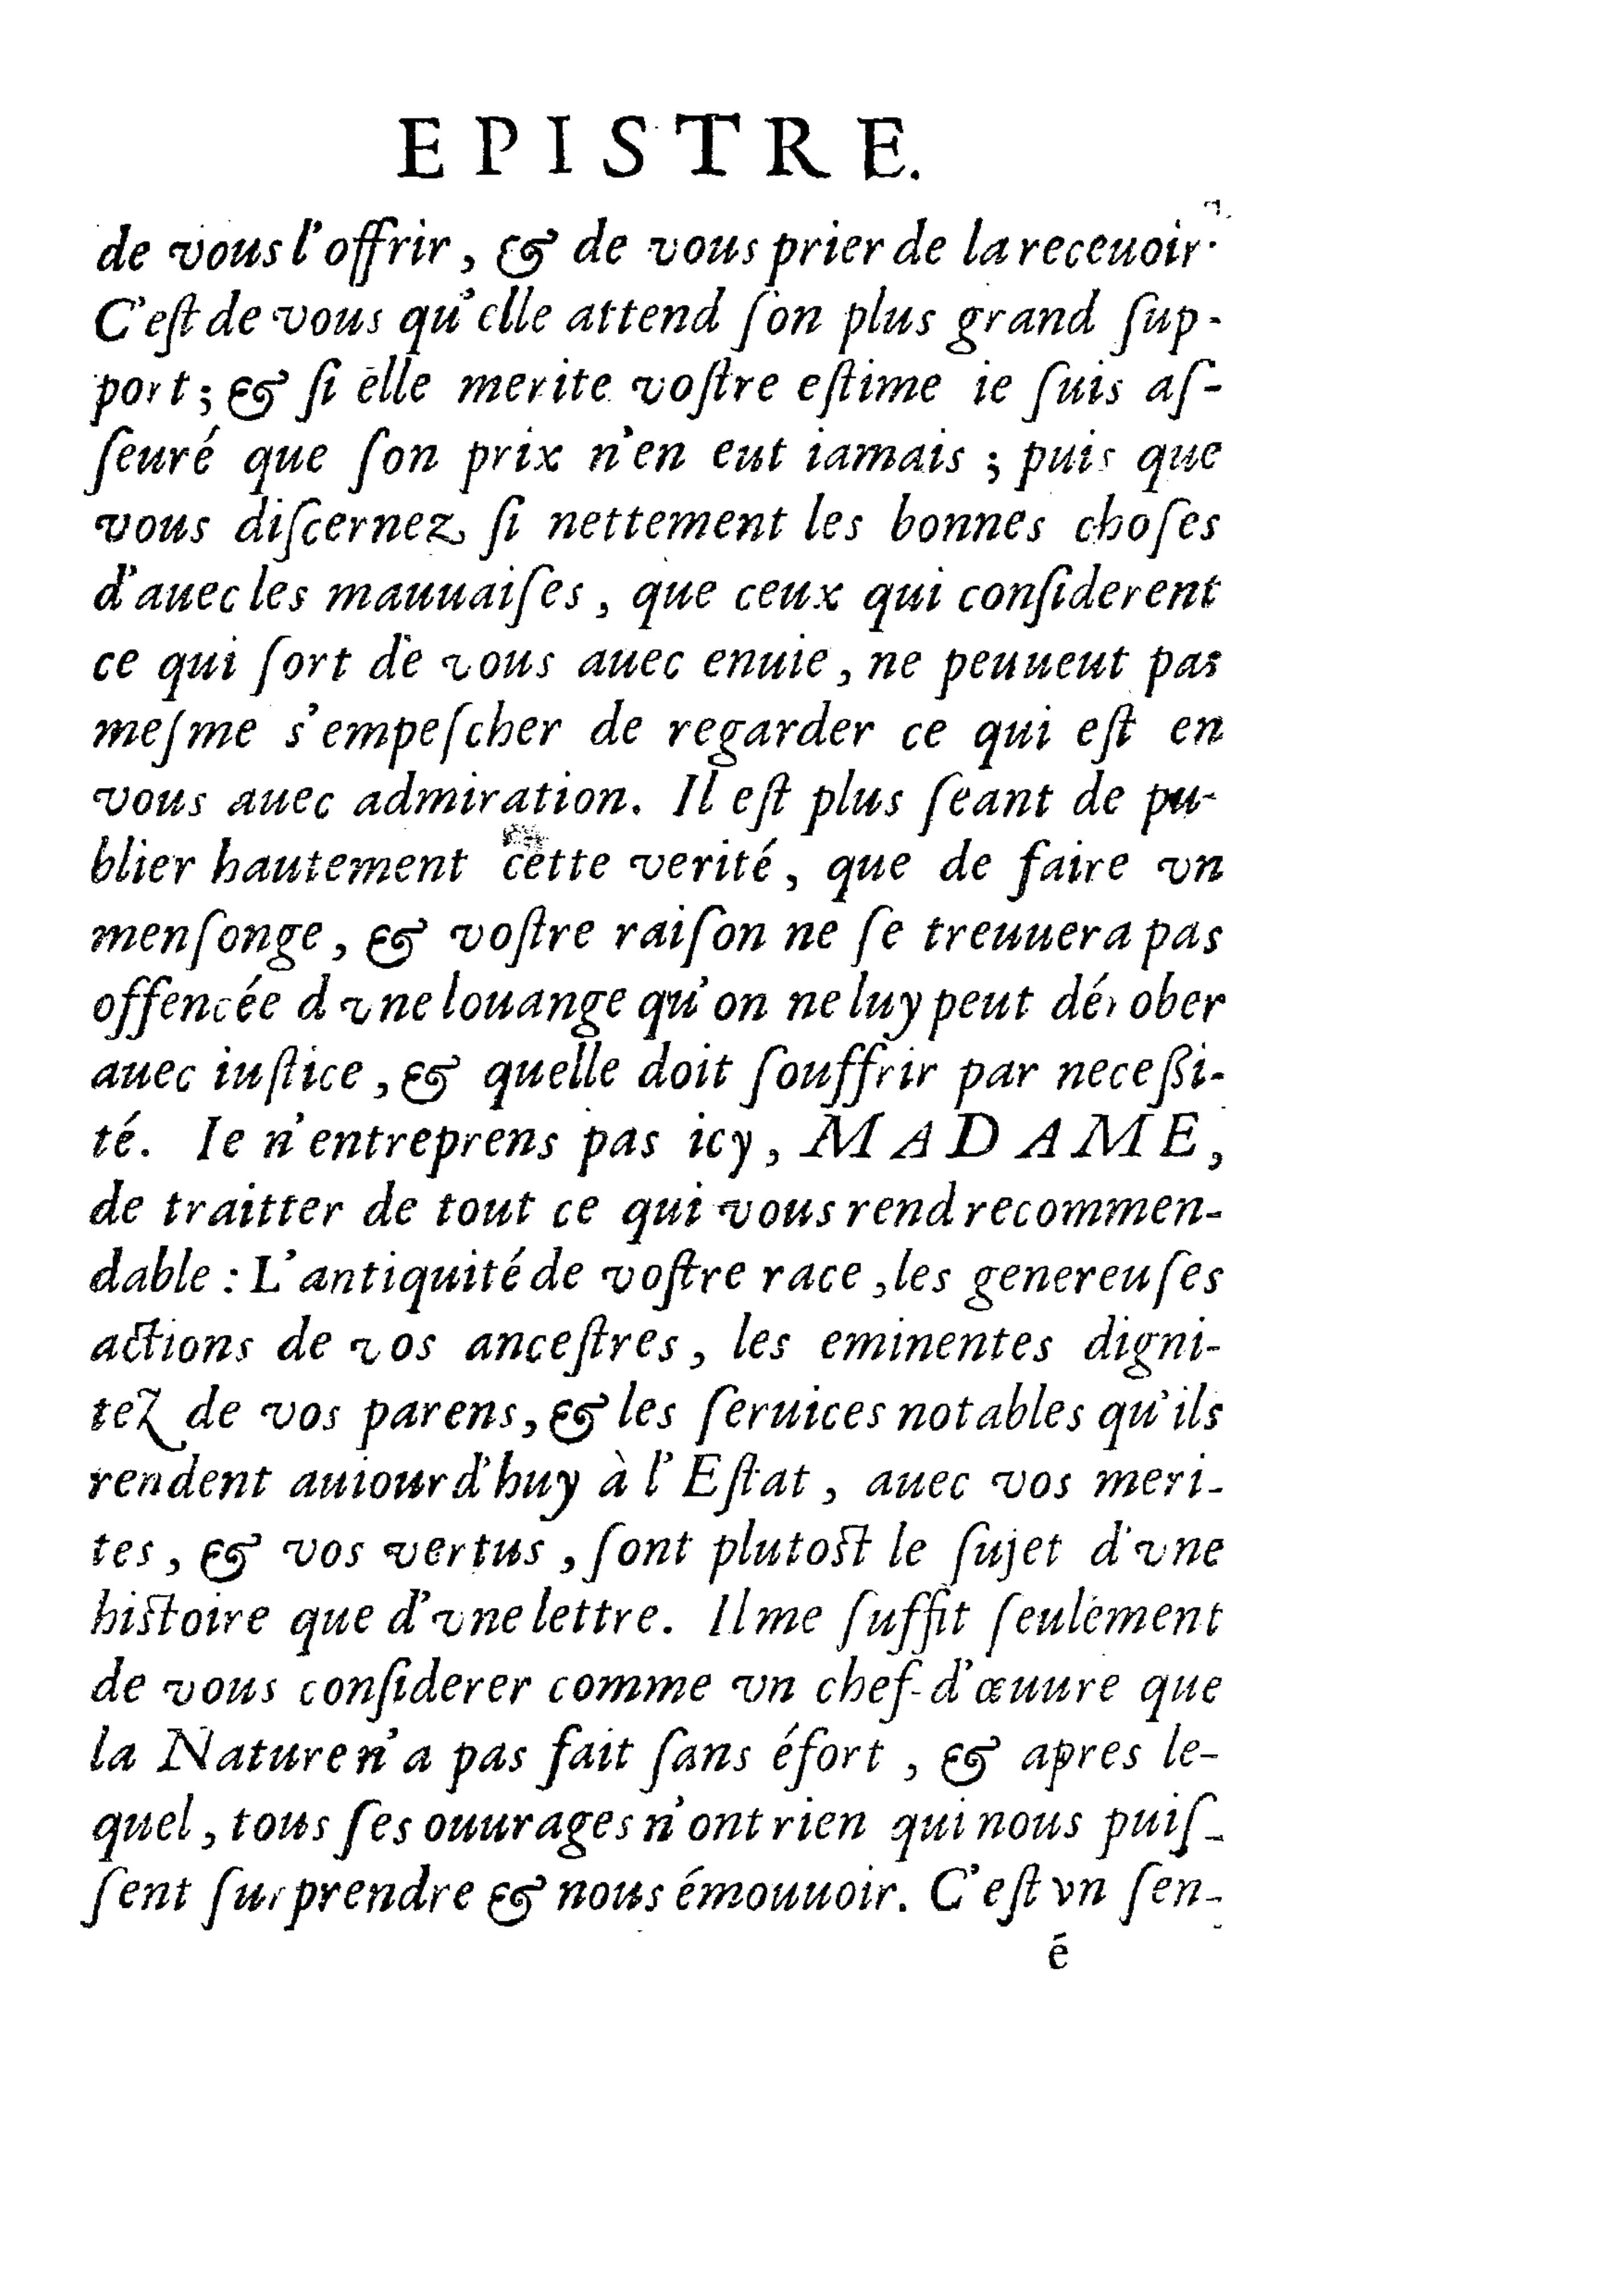 EPISTRE.
de vous l'offrir, & de vous prier de la receuoir.
C'eſt de vous qu'elle attend ſon plus grand ſup-
port; & ſi elle merite voſtre eſtime ie ſuis aſ-
ſeuré que ſon prix n'en eut iamais; puis que
vous diſcernez ſi nettement les bonnes choſes
d'auec les mauuaiſes, que ceux qui conſiderent
ce qui ſort de vous auec enuie, ne peuueut pas
meſme s'empeſcher de regarder ce qui eſt en
vous auec admiration. Il eſt plus ſeant de pu-
blier hautement cette verité, que de faire vn
menſonge, & voſtre raiſon ne ſe treuuera pas
offencée d vne louange qu'on ne luy peut dérober
auec iuſtice, & quelle doit ſouffrir par neceßi-
té. Ie n'entreprens pas icy, MADAME,
de traitter de tout ce qui vous rend recommen-
dable: L'antiquité de voſtre race, les genereuſes
actions de vos anceſtres, les eminentes digni-
tez de vos parens, & les ſeruices notables qu'ils
rendent auiourd'huy à l'Eſtat, auec vos meri-
tes, & vos vertus, ſont plutoſt le ſujet d'vne
hiſtoire que d'vne lettre. Il me ſuffit ſeulement
de vous conſiderer comme vn chef-d'œuure que
la Nature n'a pas fait ſans éfort, & apres le-
quel, tous ſes ouurages n'ont rien qui nous puiſ-
ſent ſurprendre & nous émouuoir. C'eſt vn ſen-
é